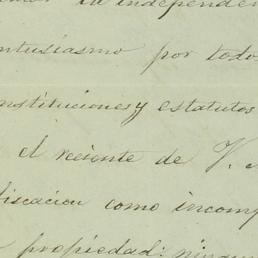 la independen
entusiasmo por todo
nstituciones y estatutos
el reciente de V.
ficacion como incomp
propiedad: ningun